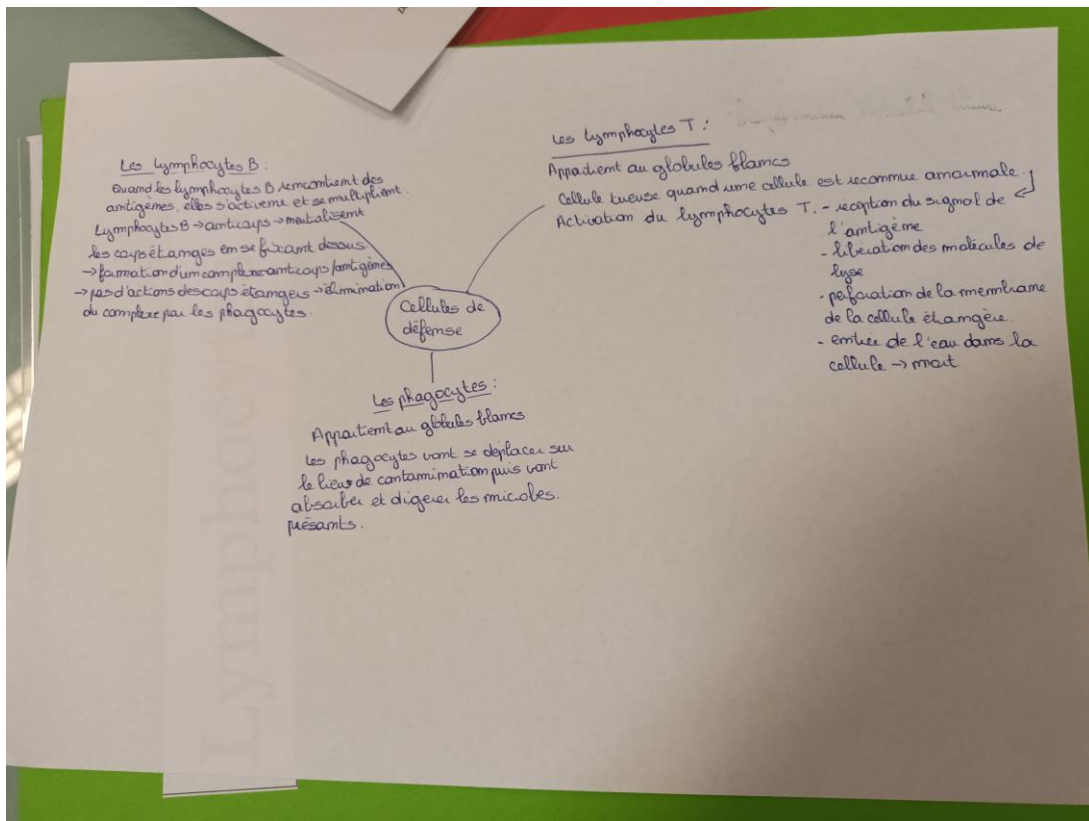 Les lymphocytes B :
Quand les lymphocytes B rencontrent des
antigènes, elles s'activent et se multiplient.
Lymphocytes B → anticorps → neutralisent
les corps étranges en se fixant dessus
→ formation d'un complexe anticorps/antigènes
→ pas d'actions des corps étrangers → élimination
du complexe par les phagocytes.
Cellules de
défense
Les lymphocytes T :
Appartient au globules blancs
Cellule tueuse quand une cellule est reconnue anourmale.
Activation du lymphocytes T : - réception du signal de
l'antigène
- libération des molécules de
lyse
- perforation de la membrane
de la cellule étrangère
- entrée de l'eau dans la
cellule → mort
Les phagocytes :
Appartient au globules blancs
Les phagocytes vont se déplacer sur
le lieux de contamination puis vont
absorber et digérer les microbes
présants.
Lymphocyt